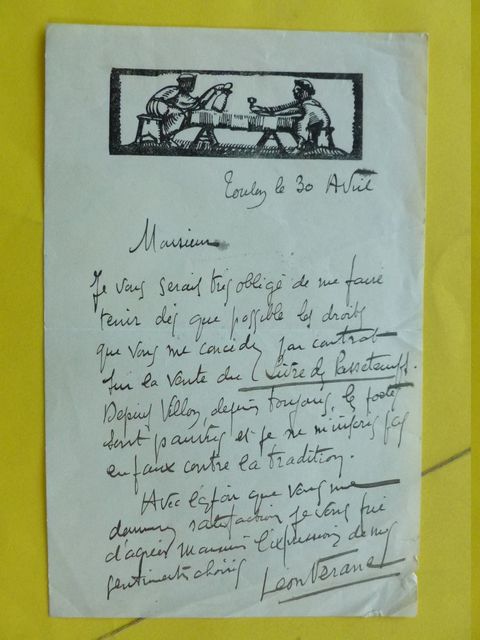 Toulon le 30 Avril
Monsieur
Je vous serais très obligé de me faire
tenir dès que possible les droits
que vous me concédez par contrat
sur la vente du Livre des Passetemps.
Depuis Villon, depuis toujours, les poètes
sont pauvres et je ne m'inscris pas
en faux contre la tradition.
Avec l'espoir que vous me
donnerez satisfaction je vous prie
d'agréer Monsieur l'expression de mes
sentiments choisis
Leon Verane